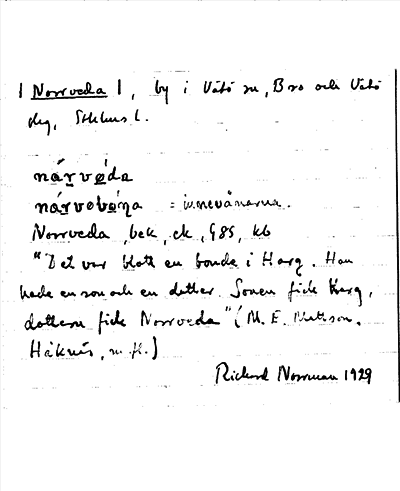 | Norrveda |, by i Vätö sn, Bro och Vätö
skg, Sthlms l.
nárvø̀da
= invånarna.
Norrveda, bek, ek, G85, kb
"Det var blott en bonde i Harg. Han
hade en son och en dotter. Sonen fick Harg,
dottern fick Norrveda" (M. E. Mattson,
Håknäs, m. fl.)
Richard Norrman 1929